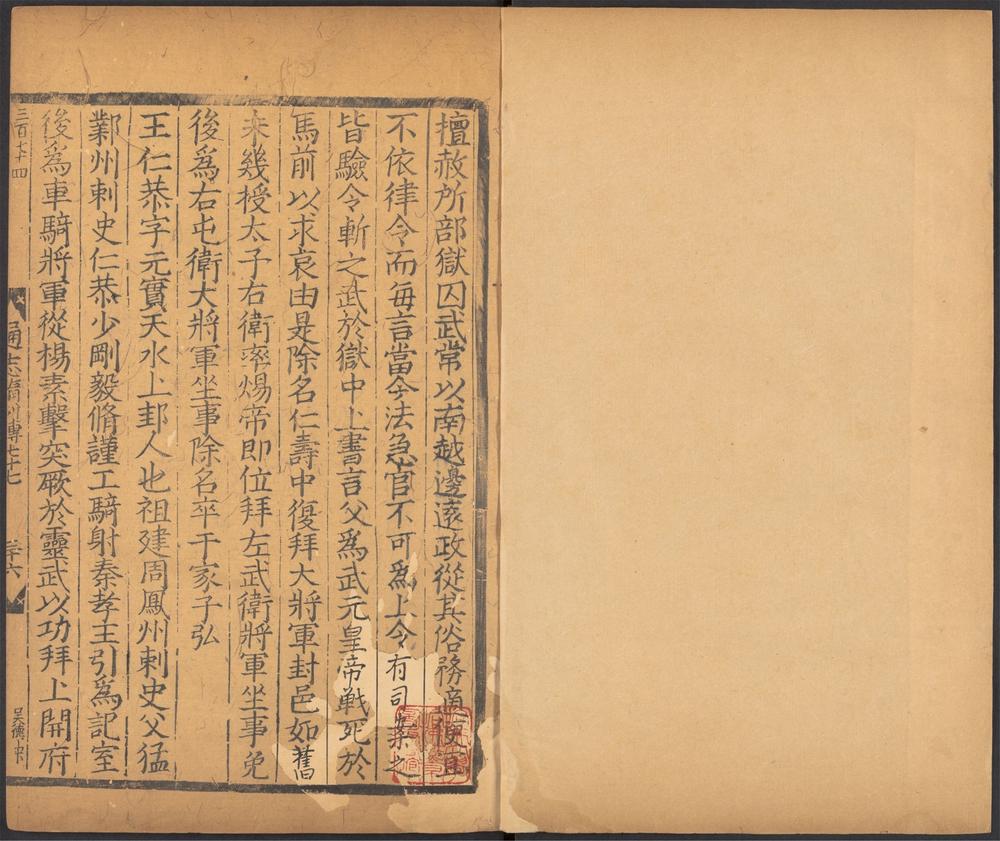 擅赦所部獄囚武常以南越邊遠政從其俗務適便宜
不依律令而每言當今法急官不可爲上令有司案之
皆驗令斬之武於獄中上書言父爲武元皇帝戰死於
馬前以求哀由是除名仁壽中復拜大將軍封邑如舊
未幾授太子右衛率煬帝即位拜左武衛將軍坐事免
後爲右屯衛大將軍坐事除名卒于家子弘
王仁恭字元實天水上邽人也祖建周鳳州刺史父猛
鄯州刺史仁恭少剛毅脩謹工騎射秦孝王引爲記室
後爲車騎將軍從楊素擊突厥於靈武以功拜上開府
三百七十四
通志 列傳七十七
六
吳德中